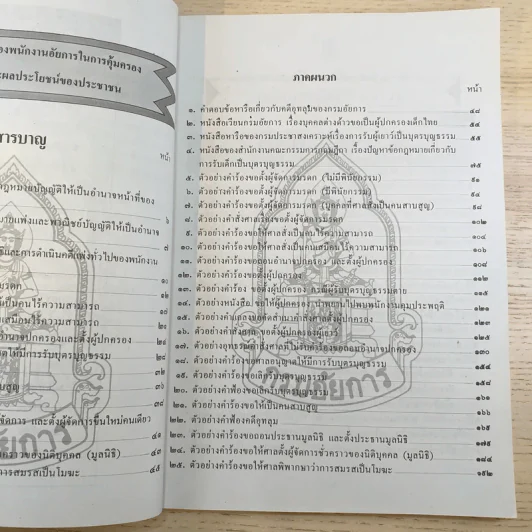 องพนักงานอัยการในการคุ้มครอง
ะผลประโยชน์ของประชาชน
ารบาญ
หน้า
กฎหมายบัญญัติให้เป็นอำนาจหน้าที่ของ
๖
มายแพ่งและพาณิชย์บัญญัติให้เป็นอำนาจ
๗
และการดำเนินคดีแพ่งทั่วไปของพนักงาน
รดก
เป็นคนไร้ความสามารถ
เสมือนไร้ความสามารถ
อำนาจปกครองและตั้งผู้ปกครอง
าตให้มีการรับบุตรบุญธรรม
ธรรม
๓๒
าบสูญ
๓๔
๓๘
จัดการ และตั้งผู้จัดการขึ้นใหม่คนเดียว
๔๑
คราวของนิติบุคคล (มูลนิธิ)
๔๓
การสมรสเป็นโมฆะ
๔๕
ภาคผนวก
หน้า
๑. คำตอบข้อหารือเกี่ยวกับคดีอุทลุมของกรมอัยการ ๔๘
๒. หนังสือเวียนกรมอัยการ เรื่องบุคคลต่างด้าวขอเป็นผู้ปกครองเด็กไทย ๕๕
๓. หนังสือหารือของกรมประชาสงเคราะห์เรื่องการรับผู้เยาว์เป็นบุตรบุญธรรม ๕๕
๔. หนังสือของสำนักงานคณะกรรมการกฤษฎีกา เรื่องปัญหาข้อกฎหมายเกี่ยวกับ
การรับเด็กเป็นบุตรบุญธรรม ๗๕
๕. ตัวอย่างคำร้องขอตั้งผู้จัดการมรดก (ไม่มีพินัยกรรม) ๙๑
๖. ตัวอย่างคำร้องขอตั้งผู้จัดการมรดก (มีพินัยกรรม) ๙๔
๗. ตัวอย่างคำร้องขอตั้งผู้จัดการมรดก (บุคคลที่ศาลสั่งเป็นคนสาบสูญ) ๙๘
๘. ตัวอย่างคำสั่งศาลเรื่องขอตั้งผู้จัดการมรดก ๑๐๒
๙. ตัวอย่างคำร้องขอให้ศาลสั่งเป็นคนไร้ความสามารถ ๑๐๔
๑๐. ตัวอย่างคำร้องขอให้ศาลสั่งเป็นคนเสมือนไร้ความสามารถ ๑๐๖
๑๑. ตัวอย่างคำร้องขอถอนอำนาจปกครอง และตั้งผู้ปกครอง ๑๐๘
๑๒. ตัวอย่างคำร้องขอตั้งผู้ปกครอง ๑๑๒
๑๓. ตัวอย่างคำร้อง ขอตั้งผู้ปกครอง กรณีผู้รับบุตรบุญธรรมตาย ๑๑๕
๑๔. ตัวอย่างหนังสือ ขอให้ผู้ปกครอง นำพยานไปพบพนักงานคุมประพฤติ ๑๒๑
๑๕. ตัวอย่างคำแถลงขอคัดสำเนาคำสั่งศาลตั้งผู้ปกครอง ๑๒๓
๑๖. ตัวอย่างคำสั่งศาล ขอตั้งผู้ปกครองผู้เยาว์ ๑๒๕
๑๗. ตัวอย่างอุทธรณ์คำสั่งศาลที่ไม่รับคำร้องขอถอนอำนาจปกครอง ๑๓๐
๑๘. ตัวอย่างคำร้องขอศาลอนุญาตให้มีการรับบุตรบุญธรรม ๑๕๔
๑๙. ตัวอย่างคำร้องขอเลิกรับบุตรบุญธรรม ๑๕๘
๒๐. ตัวอย่างคำฟ้องขอเลิกรับบุตรบุญธรรม
๒๑. ตัวอย่างคำร้องขอให้เป็นคนสาบสูญ ๑๖๖
๒๒. ตัวอย่างคำฟ้องคดีอุทลุม
๒๓. ตัวอย่างคำร้องขอถอนประธานมูลนิธิ และตั้งประธานมูลนิธิ ๑๗๙
๒๔. ตัวอย่างคำร้องขอให้ศาลตั้งผู้จัดการชั่วคราวของนิติบุคคล (มูลนิธิ) ๑๘๔
๒๕. ตัวอย่างคำร้องขอให้ศาลพิพากษาว่าการสมรสเป็นโมฆะ ๑๙๒
กรมอัยการ